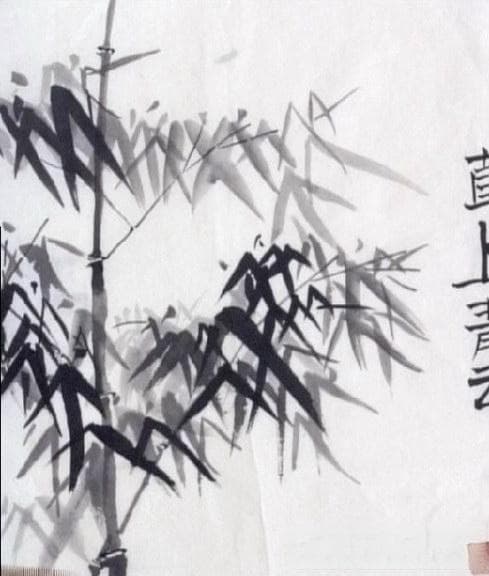 直上青云